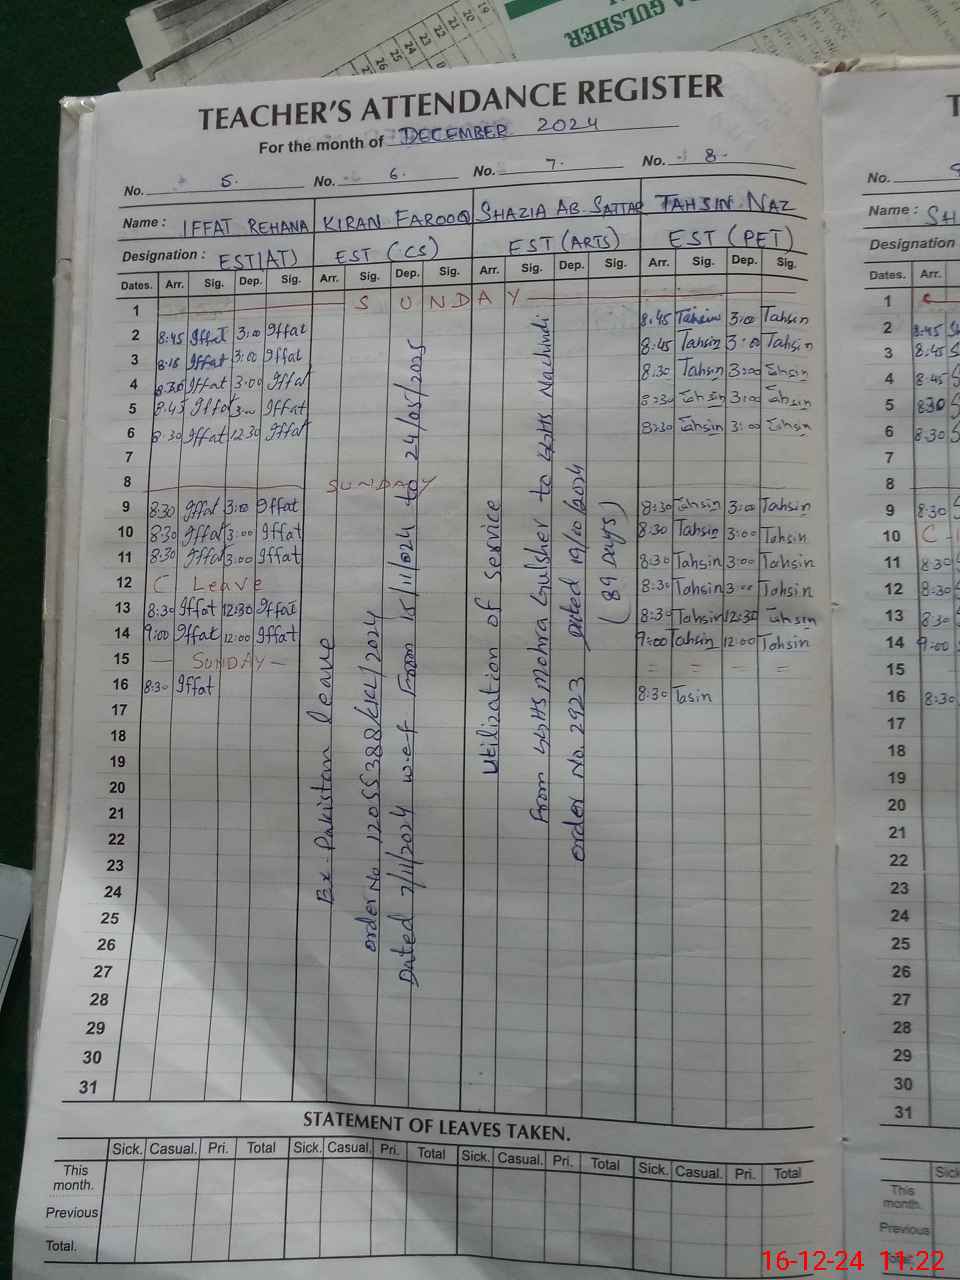 GULSHER
TEACHER'S ATTENDANCE REGISTER
For the month of DECEMBER 2024
No. 5. No. 6. No. 7. No. 8.
Name : IFFAT REHANA KIRAN FAROOQ SHAZIA AB. SATTAR TAHSIN NAZ
Designation : EST(AT) EST (CS) EST (ARTS) EST (PET)
Dates. Arr. Sig. Dep. Sig. Arr. Sig. Dep. Sig. Arr. Sig. Dep. Sig. Arr. Sig. Dep. Sig.
1 SUNDAY
2 8:45 Iffat 3:00 Iffat 8:45 Tahsin 3:00 Tahsin
3 Iffat 3:00 Iffat 8:45 Tahsin 3:00 Tahsin
4 8:30 Iffat 3:00 Iffat 8:30 Tahsin 3:00 Tahsin
5 8:45 Iffat 3:00 Iffat 8:30 Tahsin 3:00 Tahsin
6 8:30 Iffat 12:30 Iffat 8:30 Tahsin 3:00 Tahsin
7
8 SUNDAY
9 8:30 Iffat 3:00 Iffat 8:30 Tahsin 3:00 Tahsin
10 8:30 Iffat 3:00 Iffat 8:30 Tahsin 3:00 Tahsin
11 8:30 Iffat 3:00 Iffat 8:30 Tahsin 3:00 Tahsin
12 C Leave 8:30 Tahsin 3:00 Tahsin
13 8:30 Iffat 12:30 Iffat 8:30 Tahsin 12:30 Tahsin
14 9:00 Iffat 12:00 Iffat 9:00 Tahsin 12:00 Tahsin
15 — SUNDAY — = = - =
16 8:30 Iffat 8:30 Tasin
17
18
19
20
21
22
23
24
25
26
27
28
29
30
31
Ex-Pakistan leave
order No. 12055388/K1K1/2024
Dated 7/11/2024 w.e.f From 15/11/2024 to 24/05/2025
Utilization of Service
From GGHS Mohra Gulsher to GGHS Nachindi
order No. 2923 Dated 19/10/2024
(89 Days)
STATEMENT OF LEAVES TAKEN.
Sick. Casual. Pri. Total Sick. Casual. Pri. Total Sick. Casual. Pri. Total Sick. Casual. Pri. Total
This month.
Previous
Total.
No.
Name : SH
Designation
Dates. Arr.
1
2 8:45
3 8:45
4 8:45
5 830
6 8:30
7
8
9 8:30
10 C
11 8:30
12 8:30
13 8:30
14 9:00
15
16 8:30
17
18
19
20
21
22
23
24
25
26
27
28
29
30
31
This month.
Previous
16-12-24 11:22